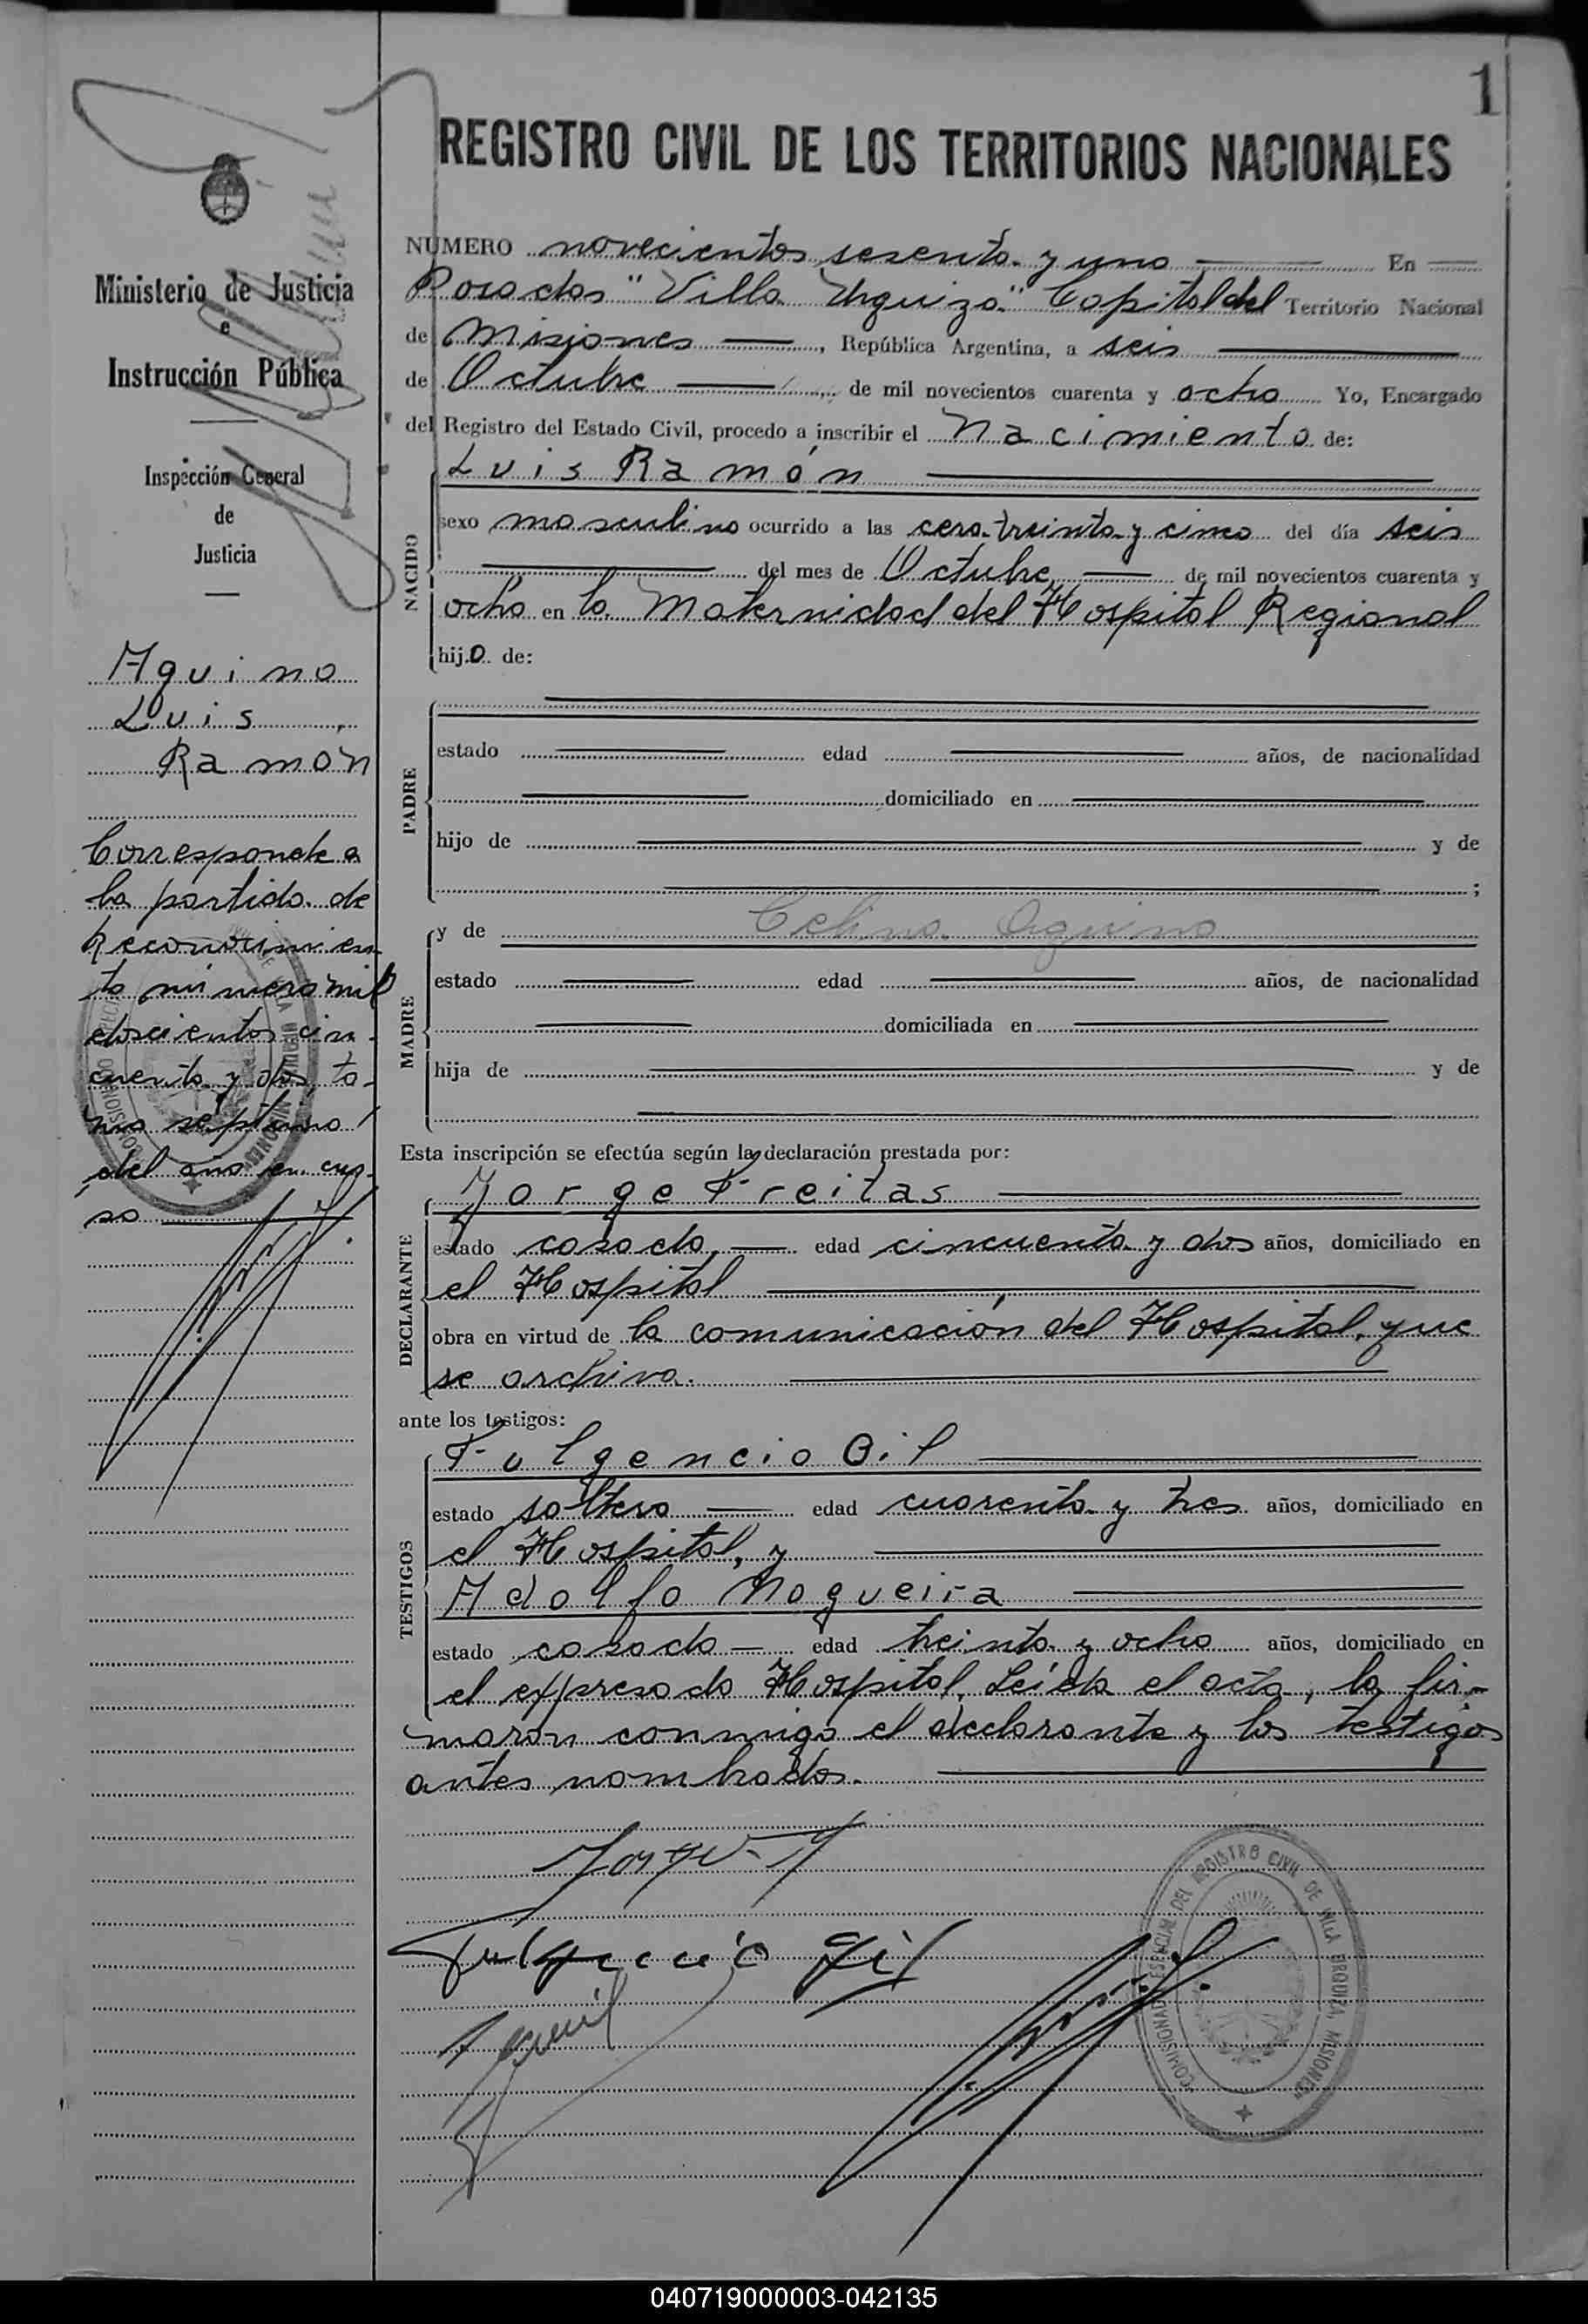 1
REGISTRO CIVIL DE LOS TERRITORIOS NACIONALES
Ministerio de Justicia
e
Instrucción Pública
Inspección General
de
Justicia
Aquino
Luis
Ramón
Corresponde a
la partida de
Reconocimien
to número mil
doscientos cin-
cuenta y dos, to-
mo séptimo
del año en cur-
so
NUMERO novecientos sesenta y uno En
Posadas "Villa Urquiza" Capital del Territorio Nacional
de Misiones, República Argentina, a seis
de Octubre de mil novecientos cuarenta y ocho Yo, Encargado
del Registro del Estado Civil, procedo a inscribir el Nacimiento de:
NACIDO
Luis Ramón
sexo masculino ocurrido a las cero treinta y cinco del día seis
del mes de Octubre de mil novecientos cuarenta y
ocho en la Maternidad del Hospital Regional
hijo de:
PADRE
estado edad años, de nacionalidad
domiciliado en
hijo de y de
;
MADRE
y de Celina Aquino
estado edad años, de nacionalidad
domiciliada en
hija de y de
Esta inscripción se efectúa según la declaración prestada por:
DECLARANTE
Jorge Freitas
estado casado edad cincuenta y dos años, domiciliado en
el Hospital
obra en virtud de la comunicación del Hospital, que
se archiva.
ante los testigos:
TESTIGOS
Fulgencio Gil
estado soltero edad cuarenta y tres años, domiciliado en
el Hospital, y
Adolfo Nogueira
estado casado edad treinta y ocho años, domiciliado en
el expresado Hospital. Leída el acta, la fir-
maron conmigo el declarante y los testigos
antes nombrados.
Fulgencio Gil
COMISIONADO ESPECIAL DEL REGISTRO CIVIL DE VILLA URQUIZA, MISIONES
040719000003-042135